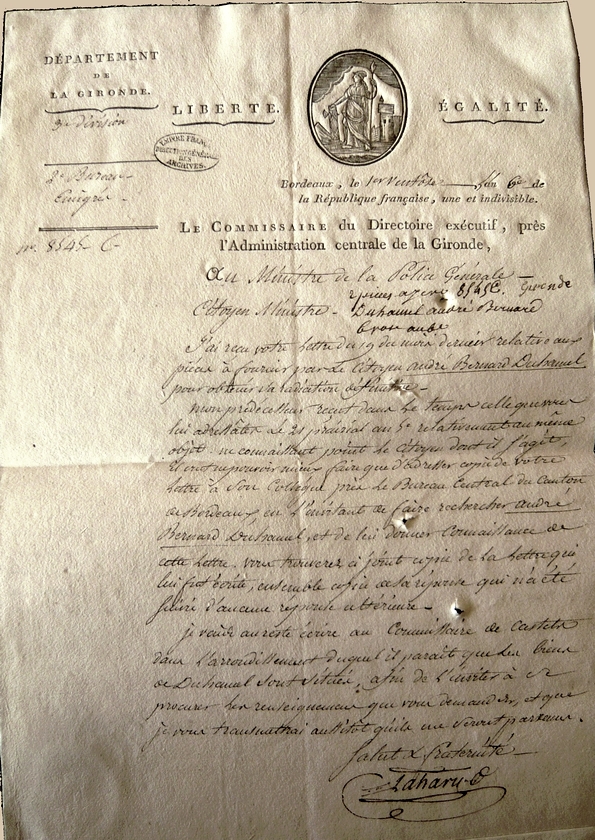 DÉPARTEMENT
DE
LA GIRONDE.
3e division
LIBERTÉ.
ÉGALITÉ.
EMPIRE FRANÇ.
DIRECTION GÉNÉRALE
DES
ARCHIVES.
2e Bureau
Emigrés
nº. 8545 C
Bordeaux, le 1er Ventôse l'an 6e de
la République française, une et indivisible.
LE COMMISSAIRE du Directoire exécutif, près
l'Administration centrale de la Gironde,
Au Ministre de la Police Générale
8545 C. Gironde
Citoyen Ministre
Duhamel andré Bernard
J'ai reçu votre lettre du 19 du mois dernier relative aux
pièces à fournir par le Citoyen andré Bernard Duhamel
pour obtenir sa radiation définitive
mon prédécesseur reçut dans le temps celle que vous
lui adressâtes le 21 prairial an 5e relativement au même
objet. ne connaissant point le Citoyen dont il s'agit,
il crut ne pouvoir mieux faire que d'adresser copie de votre
lettre à son Collègue près le Bureau Central du Canton
de Bordeaux en l'invitant de faire rechercher andré
Bernard Duhamel, et de lui donner Connaissance de
cette lettre. vous trouverez ci joint copie de la lettre qui
lui fut écrite, ensemble copie de sa réponse qui n'a été
suivie d'aucune réponse ultérieure
je vais au reste écrire au Commissaire de Castets
dans l'arrondissement duquel il paraît que les biens
de Duhamel sont situés, afin de l'inviter à se
procurer les renseignemens que vous demandez, et que
je vous transmettrai aussitôt qu'ils me seront parvenus.
Salut & fraternité
Lahary